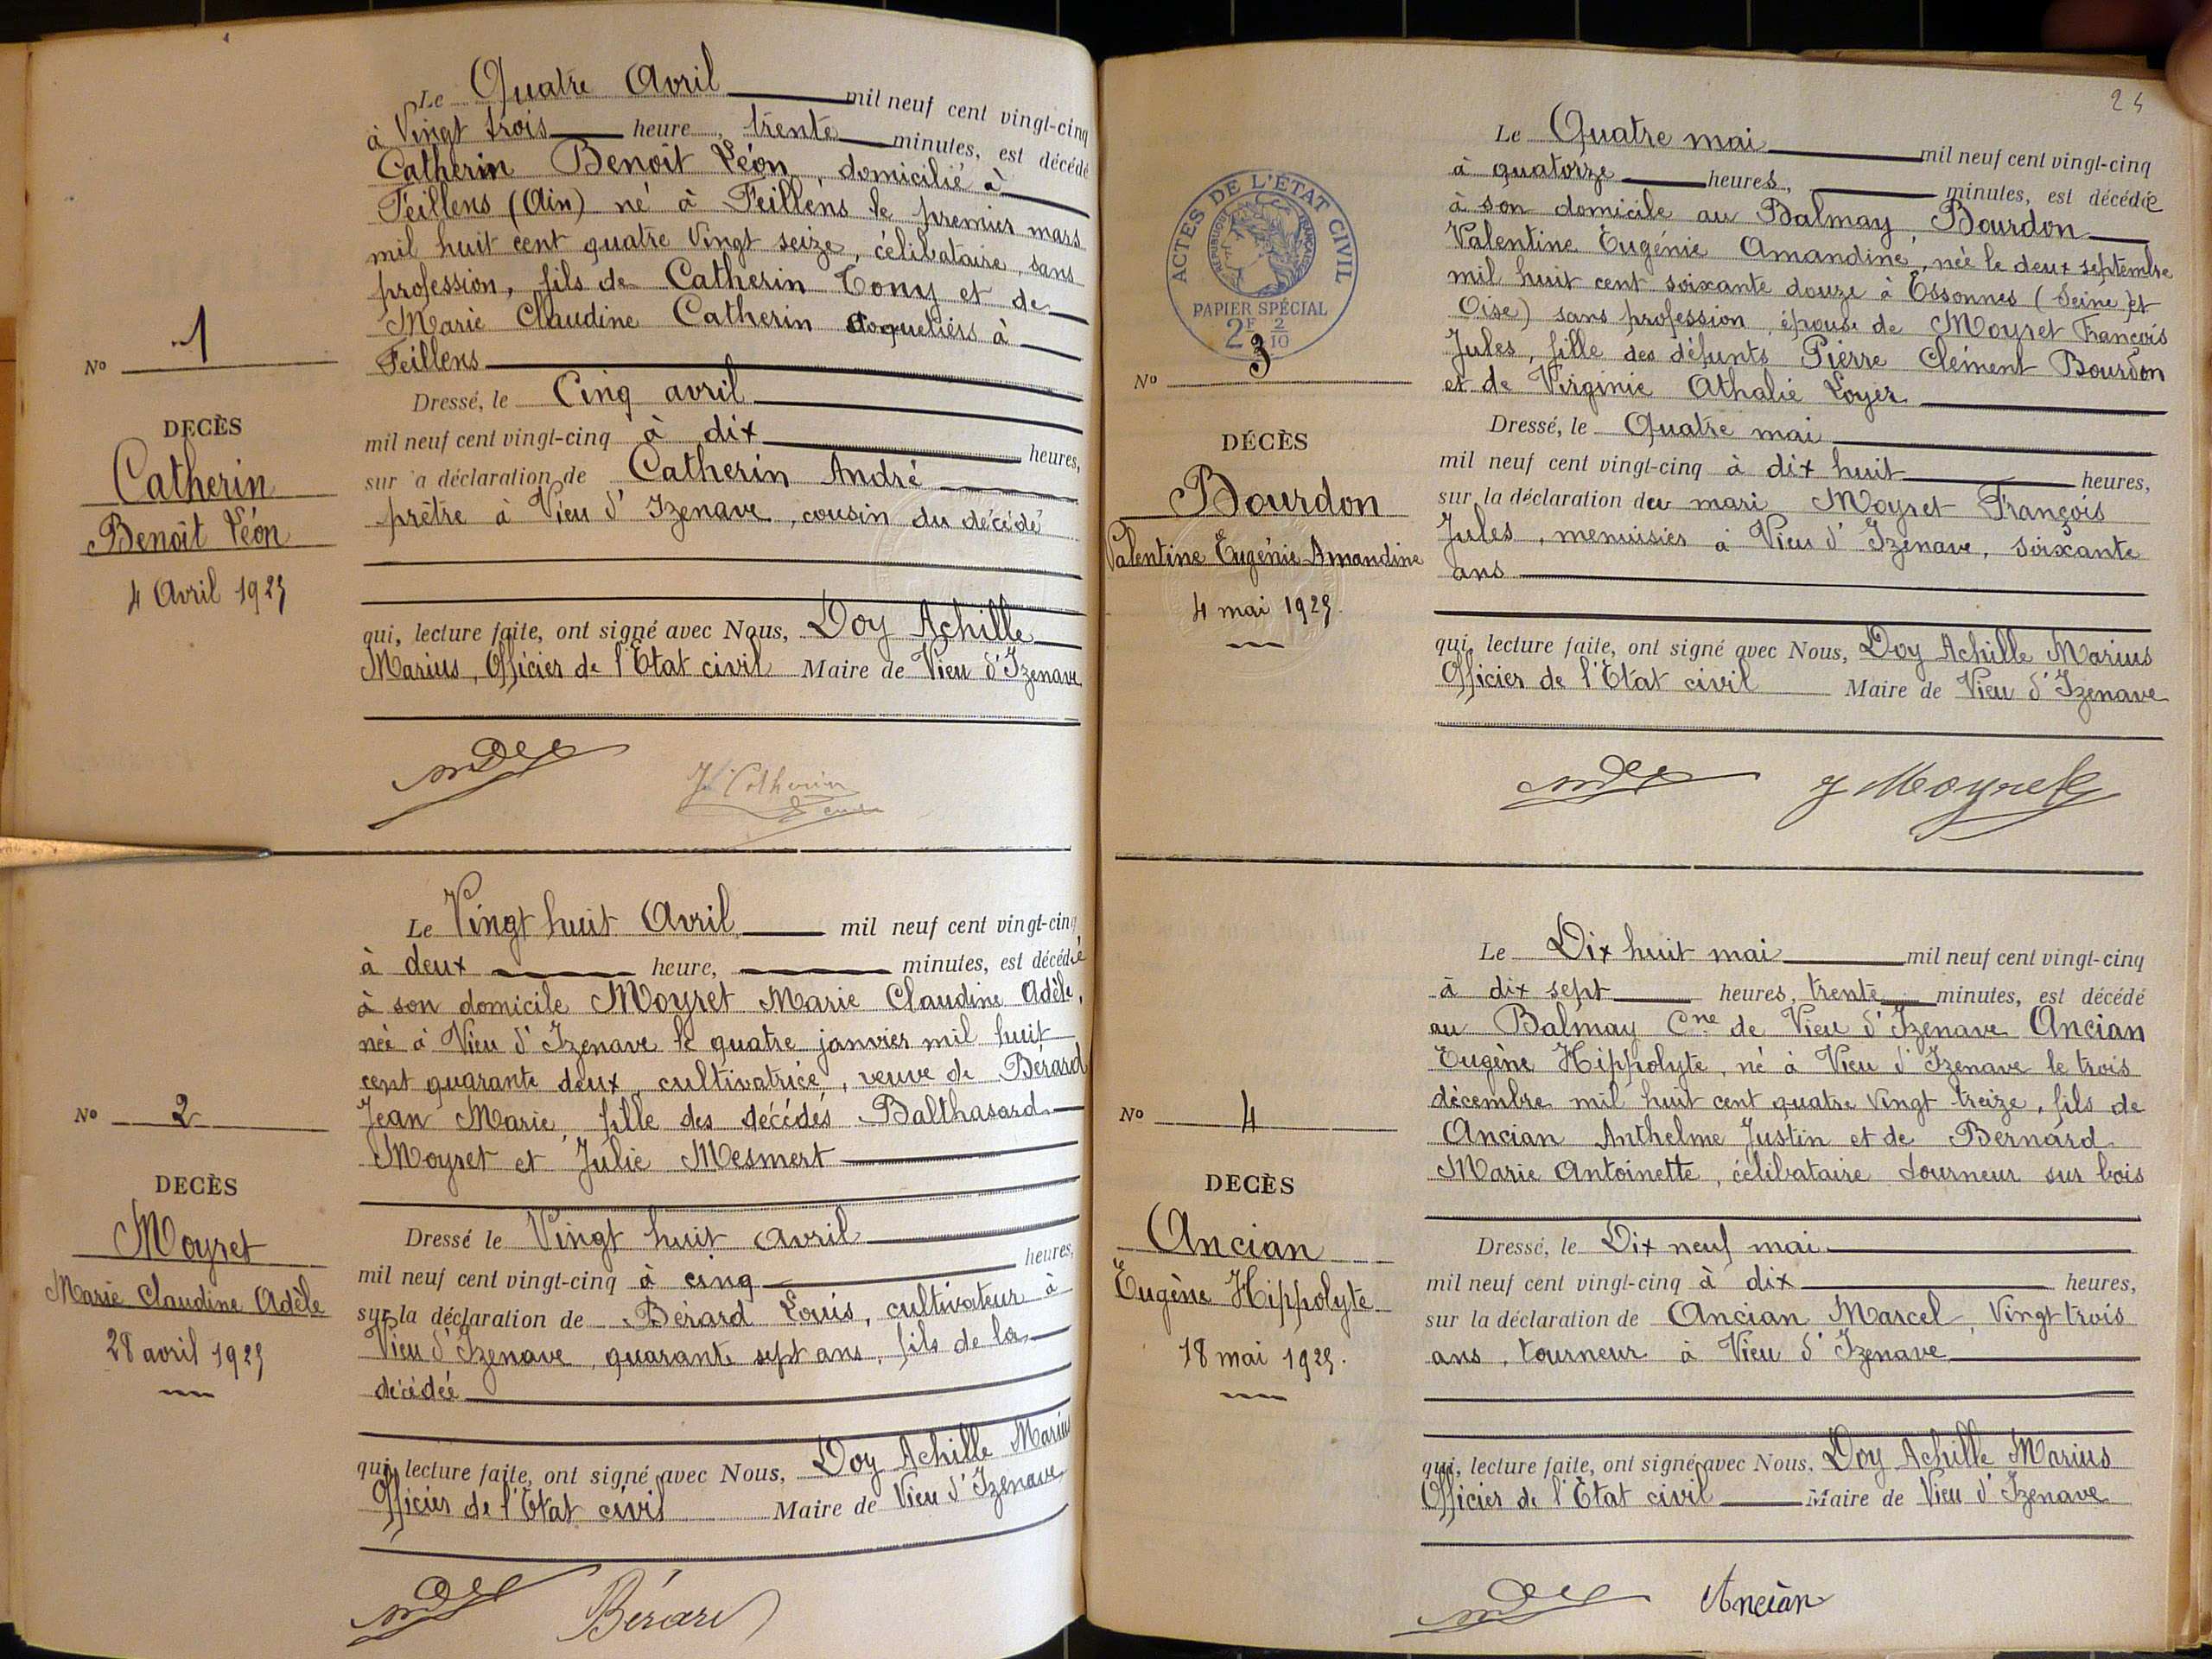 Le Quatre Avril mil neuf cent vingt-cinq
à Vingt trois heure, trente minutes, est décédé
Catherin Benoît Léon, domicilié à
Feillens (Ain) né à Feillens le premier mars
mil huit cent quatre vingt seize, célibataire, sans
profession, fils de Catherin Tony et de
Marie Claudine Catherin coquetiers à
Feillens
Nº 1
Dressé, le Cinq avril
mil neuf cent vingt-cinq à dix heures,
sur a déclaration de Catherin André
prêtre à Vieu d'Izenave, cousin du décédé
DECÈS
Catherin
Benoît Léon
4 Avril 1925
qui, lecture faite, ont signé avec Nous, Doy Achille
Marius, Officier de l'Etat civil Maire de Vieu d'Izenave
J. Catherin
Le Vingt huit Avril mil neuf cent vingt-cinq
à deux heure, minutes, est décédée
à son domicile Moyret Marie Claudine Adèle,
née à Vieu d'Izenave le quatre janvier mil huit
cent quarante deux, cultivatrice, veuve de Bérard
Jean Marie, fille des décédés Balthasard
Moyret et Julie Mesmert
Nº 2
DECÈS
Moyret
Marie Claudine Adèle
28 avril 1925
Dressé le Vingt huit avril
mil neuf cent vingt-cinq à cinq heures,
sur la déclaration de Bérard Louis, cultivateur à
Vieu d'Izenave, quarante sept ans, fils de la
décédée
qui, lecture faite, ont signé avec Nous, Doy Achille Marius
Officier de l'Etat civil Maire de Vieu d'Izenave
Bérard
24
ACTES DE L'ÉTAT CIVIL
RÉPUBLIQUE FRANÇAISE
PAPIER SPÉCIAL
2F 2/10
Le Quatre mai mil neuf cent vingt-cinq
à quatorze heures, minutes, est décédée
à son domicile au Balmay, Bourdon
Valentine Eugénie Amandine, née le deux septembre
mil huit cent soixante douze à Essonnes (Seine et
Oise) sans profession, épouse de Moyret François
Jules, fille des défunts Pierre Clément Bourdon
et de Virginie Athalie Loyer
Nº 3
DÉCÈS
Bourdon
Valentine Eugénie Amandine
4 mai 1925.
Dressé, le Quatre mai
mil neuf cent vingt-cinq à dix huit heures,
sur la déclaration du mari Moyret François
Jules, menuisier à Vieu d'Izenave, soixante
ans
qui, lecture faite, ont signé avec Nous, Doy Achille Marius
Officier de l'Etat civil Maire de Vieu d'Izenave
J Moyret
Le Dix huit mai mil neuf cent vingt-cinq
à dix sept heures, trente minutes, est décédé
au Balmay Cne de Vieu d'Izenave Ancian
Eugène Hippolyte, né à Vieu d'Izenave le trois
décembre mil huit cent quatre vingt treize, fils de
Ancian Anthelme Justin et de Bernard
Marie Antoinette, célibataire tourneur sur bois
Nº 4
DECÈS
Ancian
Eugène Hippolyte
18 mai 1925.
Dressé, le Dix neuf mai
mil neuf cent vingt-cinq à dix heures,
sur la déclaration de Ancian Marcel, Vingt trois
ans, tourneur à Vieu d'Izenave
qui, lecture faite, ont signé avec Nous, Doy Achille Marius
Officier de l'Etat civil Maire de Vieu d'Izenave
Ancian